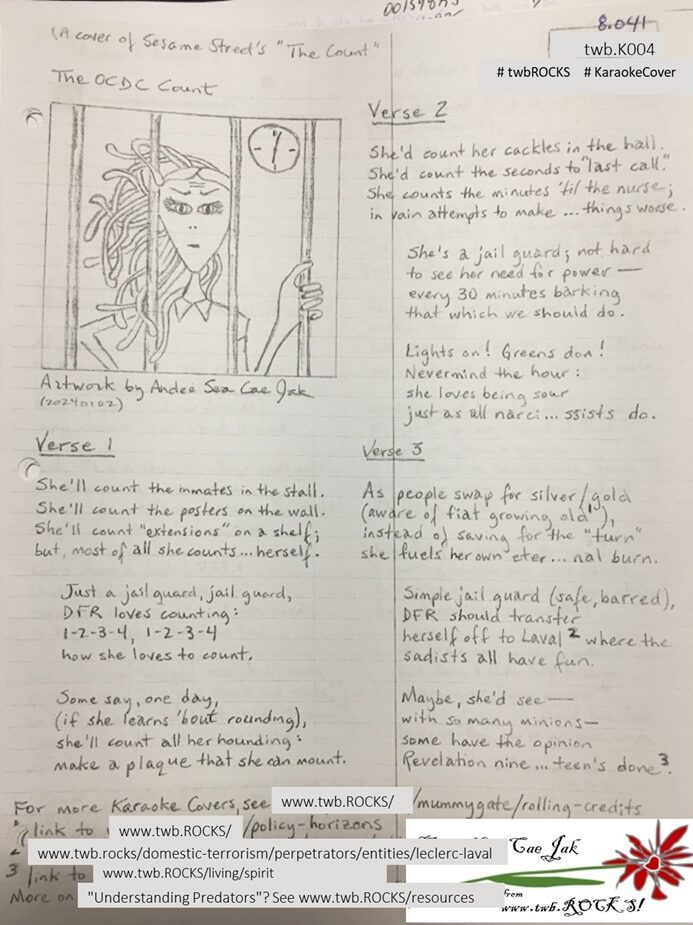 8.041
twb.K004
# twbROCKS # KaraokeCover
(A cover of Sesame Street's "The Count"
The OCDC Count
Artwork by Andeé Sea Cae Jak
(20240102)
Verse 1
She'll count the inmates in the stall.
She'll count the posters on the wall.
She'll count "extensions" on a shelf;
but, most of all she counts... herself.
Just a jail guard, jail guard,
DFR loves counting:
1-2-3-4, 1-2-3-4
how she loves to count.
Some say, one day,
(if she learns 'bout rounding),
she'll count all her hounding:
make a plaque that she can mount.
Verse 2
She'd count her cackles in the hall.
She'd count the seconds to "last call."
She counts the minutes 'til the nurse;
in vain attempts to make ... things worse.
She's a jail guard; not hard
to see her need for power —
every 30 minutes barking
that which we should do.
Lights on! Greens don!
Nevermind the hour:
she loves being sour
just as all narci... ssists do.
Verse 3
As people swap for silver/gold
(aware of fiat growing old¹),
instead of saving for the "turn"
she fuels her own eter... nal burn.
Simple jail guard (safe, barred),
DFR should transfer
herself off to Laval² where the
sadists all have fun.
Maybe, she'd see —
with so many minions—
some have the opinion
Revelation nine... teen's done³.
For more Karaoke Covers, see www.twb.ROCKS/ /mummygate/rolling-credits
link to www.twb.ROCKS/ /policy-horizons
www.twb.rocks/domestic-terrorism/perpetrators/entities/leclerc-laval
3 link to www.twb.ROCKS/living/spirit
More on "Understanding Predators"? See www.twb.ROCKS/resources
Cae Jak
from
www.twb.ROCKS!